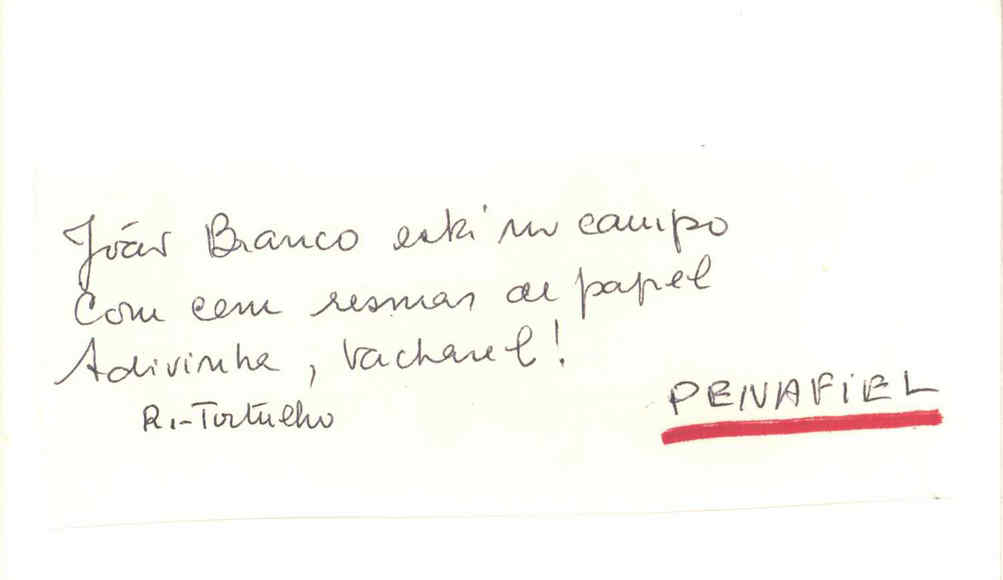 João Branco está no campo
Com cem resmas de papel
Adivinha, bacharel!
R.-Tortulho
PENAFIEL